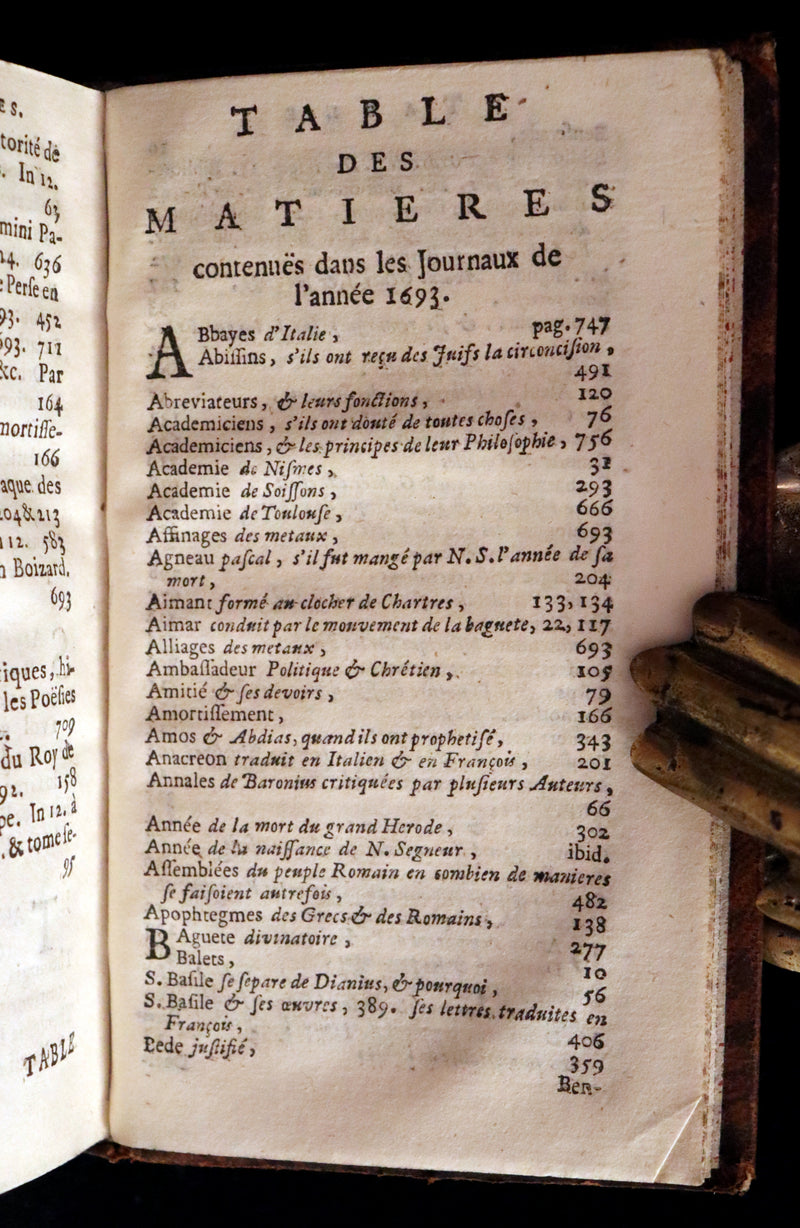 ES.
torité de
. In 12.
63
mini Pa-
24. 636
Perse en
93. 452
693. 711
&c. Par
164
mortisse-
166
aque des
204 & 213
112. 583
n Boizard,
693
iques, hi-
les Poësies
709
du Roy de
92. 158
pe. In 12. à
. & tome se-
95
TABLE
TABLE
DES
MATIERES
contenuës dans les Journaux de
l'année 1693.
ABbayes d'Italie, pag. 747
Abissins, s'ils ont reçu des Juifs la circoncision,
491
Abreviateurs, & leurs fonctions, 120
Academiciens, s'ils ont douté de toutes choses, 76
Academiciens, & les principes de leur Philosophie, 756
Academie de Nismes, 32
Academie de Soissons, 293
Academie de Toulouse, 666
Affinages des metaux, 693
Agneau pascal, s'il fut mangé par N. S. l'année de sa
mort, 204
Aimant formé au clocher de Chartres, 133, 134
Aimar conduit par le mouvement de la baguete, 22, 117
Alliages des metaux, 693
Ambassadeur Politique & Chrétien, 105
Amitié & ses devoirs, 79
Amortissement, 166
Amos & Abdias, quand ils ont prophetisé, 343
Anacreon traduit en Italien & en François, 201
Annales de Baronius critiquées par plusieurs Auteurs,
66
Année de la mort du grand Herode, 302
Année de la naissance de N. Segneur, ibid.
Assemblées du peuple Romain en combien de manieres
se faisoient autrefois, 482
Apophtegmes des Grecs & des Romains, 138
BAguete divinatoire, 277
Balets, 10
S. Basile se separe de Dianius, & pourquoi, 56
S. Basile & ses œuvres, 389. ses lettres traduites en
François, 406
Bede justifié, 359
Ben-